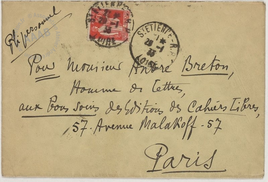 Personnel
ST ETIENNE - R.P.
LOIRE
ST ETIENNE - R.P.
LOIRE
Pour Monsieur André Breton,
Homme de lettres,
aux Bons Soins des Éditions des Cahiers Libres,
57. Avenue Malakoff - 57
Paris